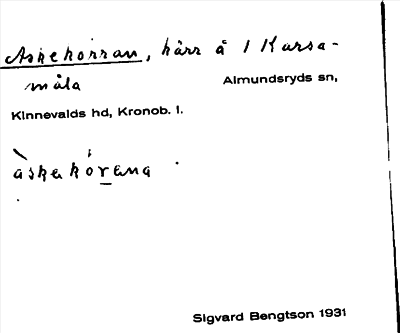 Askekörran, kärr å 1 Kursa-
måla Almundsryds sn,
Kinnevalds hd, Kronob. l.
àskekórena
Sigvard Bengtson 1931